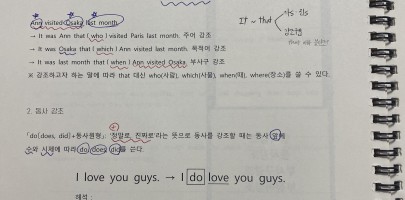 It - that
가주, 진주
강조구문
Ann visited Osaka last month.
→ It was Ann that ( who ) visited Paris last month. 주어 강조
→ It was Osaka that ( which ) Ann visited last month. 목적어 강조
→ It was last month that ( when ) Ann visited Osaka. 부사구 강조
※ 강조하고자 하는 말에 따라 that 대신 who(사람), which(사물), when(때), where(장소)를 쓸 수 있다.
2. 동사 강조
「do[does, did]+동사원형」 '정말로, 진짜로'라는 뜻으로 동사를 강조할 때는 동사 앞에
수와 시제에 따라 do, does, did를 쓴다.
I love you guys. → I do love you guys.
해석 :